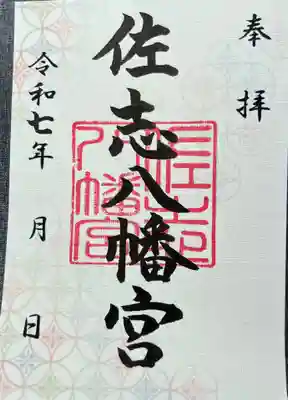 奉拝
佐志八幡宮
佐志八幡宮
令和七年 月 日